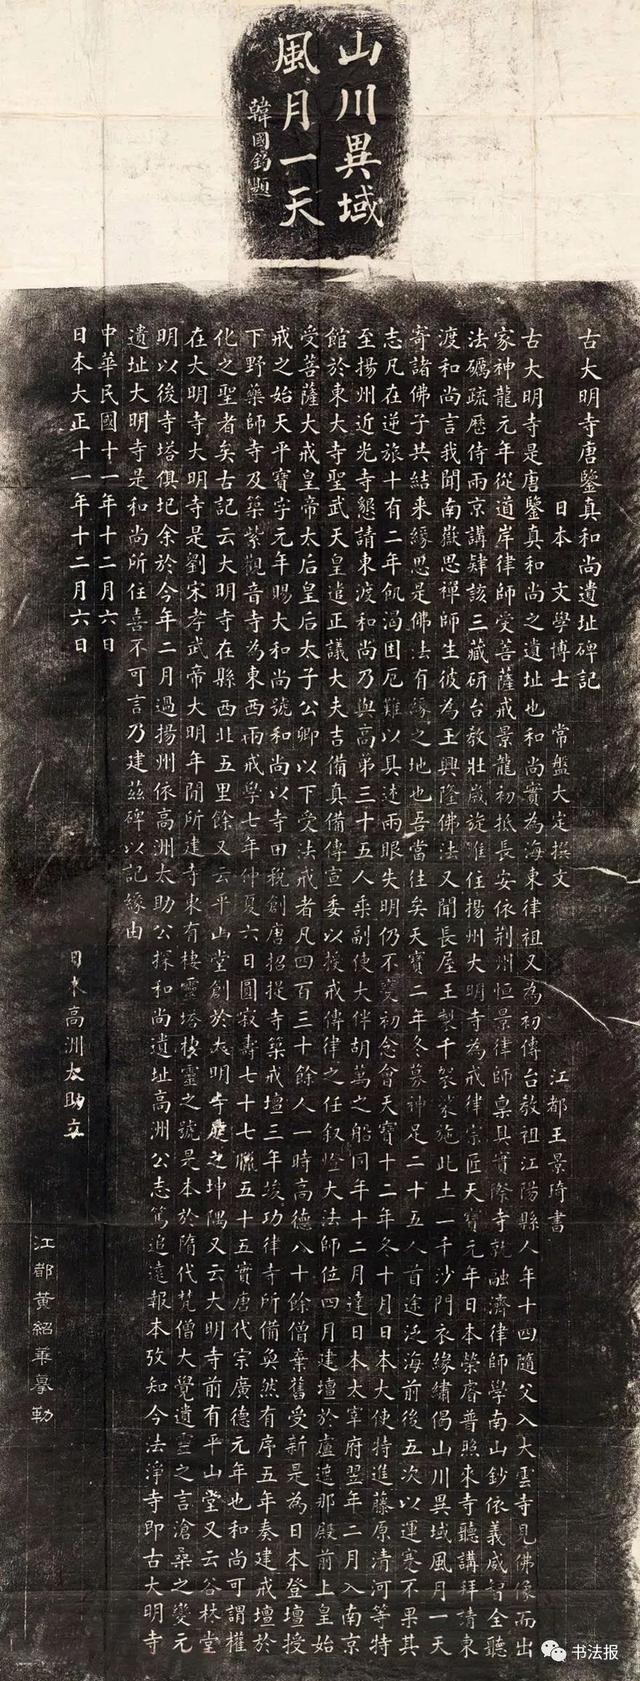 山川異域
風月一天
韓國鈞題
古大明寺唐鑒真和尚遺址碑記
日本 文學博士 常盤大定撰文
江都王景琦書
古大明寺是唐鑒真和尚之遺址也和尚實為海東律祖又為初傳台教祖江陽縣人年十四隨父入大雲寺見佛像而出
家神龍元年從道岸律師受菩薩戒景龍初抵長安依荆州恒景律師稟具實際寺就融濟律師學南山鈔依義威智全聽
法礪疏歷侍兩京講肆該三藏研台教壯歲旋淮住揚州大明寺為戒律宗匠天寶元年日本榮睿普照來寺聽講拜請東
渡和尚言我聞南嶽思禪師生彼為王興隆佛法又聞長屋王製千袈裟施此土一千沙門衣緣繡偈山川異域風月一天
寄諸佛子共結来緣思是佛法有緣之地也吾當往矣天寶二年冬募神足二十五人首途泛海前後五次以運蹇不果其
志凡在逆旅十有二年飢渴困厄難以具述兩眼失明仍不變初念會天寶十二年冬十月日本大使特進藤原清河等特
至揚州近光寺懇請東渡和尚乃與高弟三十五人乘副使大伴胡萬之船同年十二月達日本太宰府翌年二月入南京
館於東大寺聖武天皇遣正議大夫吉備真備傳宣委以授戒傳律之任叙燈大法師位四月建壇於盧遮那殿前上皇始
受菩薩大戒皇帝太后皇后太子公卿以下受法戒者凡四百三十餘人一時高德八十餘僧棄舊受新是為日本登壇授
戒之始天平寶字元年賜大和尚號和尚以寺田税創唐招提寺築戒壇三年竣功律寺所備奐然有序五年奏建戒壇於
下野藥師寺及築紫觀音寺為東西兩戒學七年仲夏六日圓寂壽七十七臘五十五實唐代宗廣德元年也和尚可謂權
化之聖者矣古記云大明寺在縣西北五里餘又云平山堂創於大明寺庭之坤隅又云大明寺前有平山堂又云谷林堂
在大明寺大明寺是劉宋孝武帝大明年間所建寺東有棲靈塔棲靈之號是本於隋代梵僧大覺遺靈之言滄桑之變元
明以後寺塔俱圮余於今年二月過揚州依高洲太助公探和尚遺址高洲公志篤追遠報本攷知今法淨寺即古大明寺
遺址大明寺是和尚所住喜不可言乃建茲碑以記緣由
中華民國十一年十二月六日
日本大正十一年十二月六日
日本高洲太助立
江都黃紹華摹勒
书法报